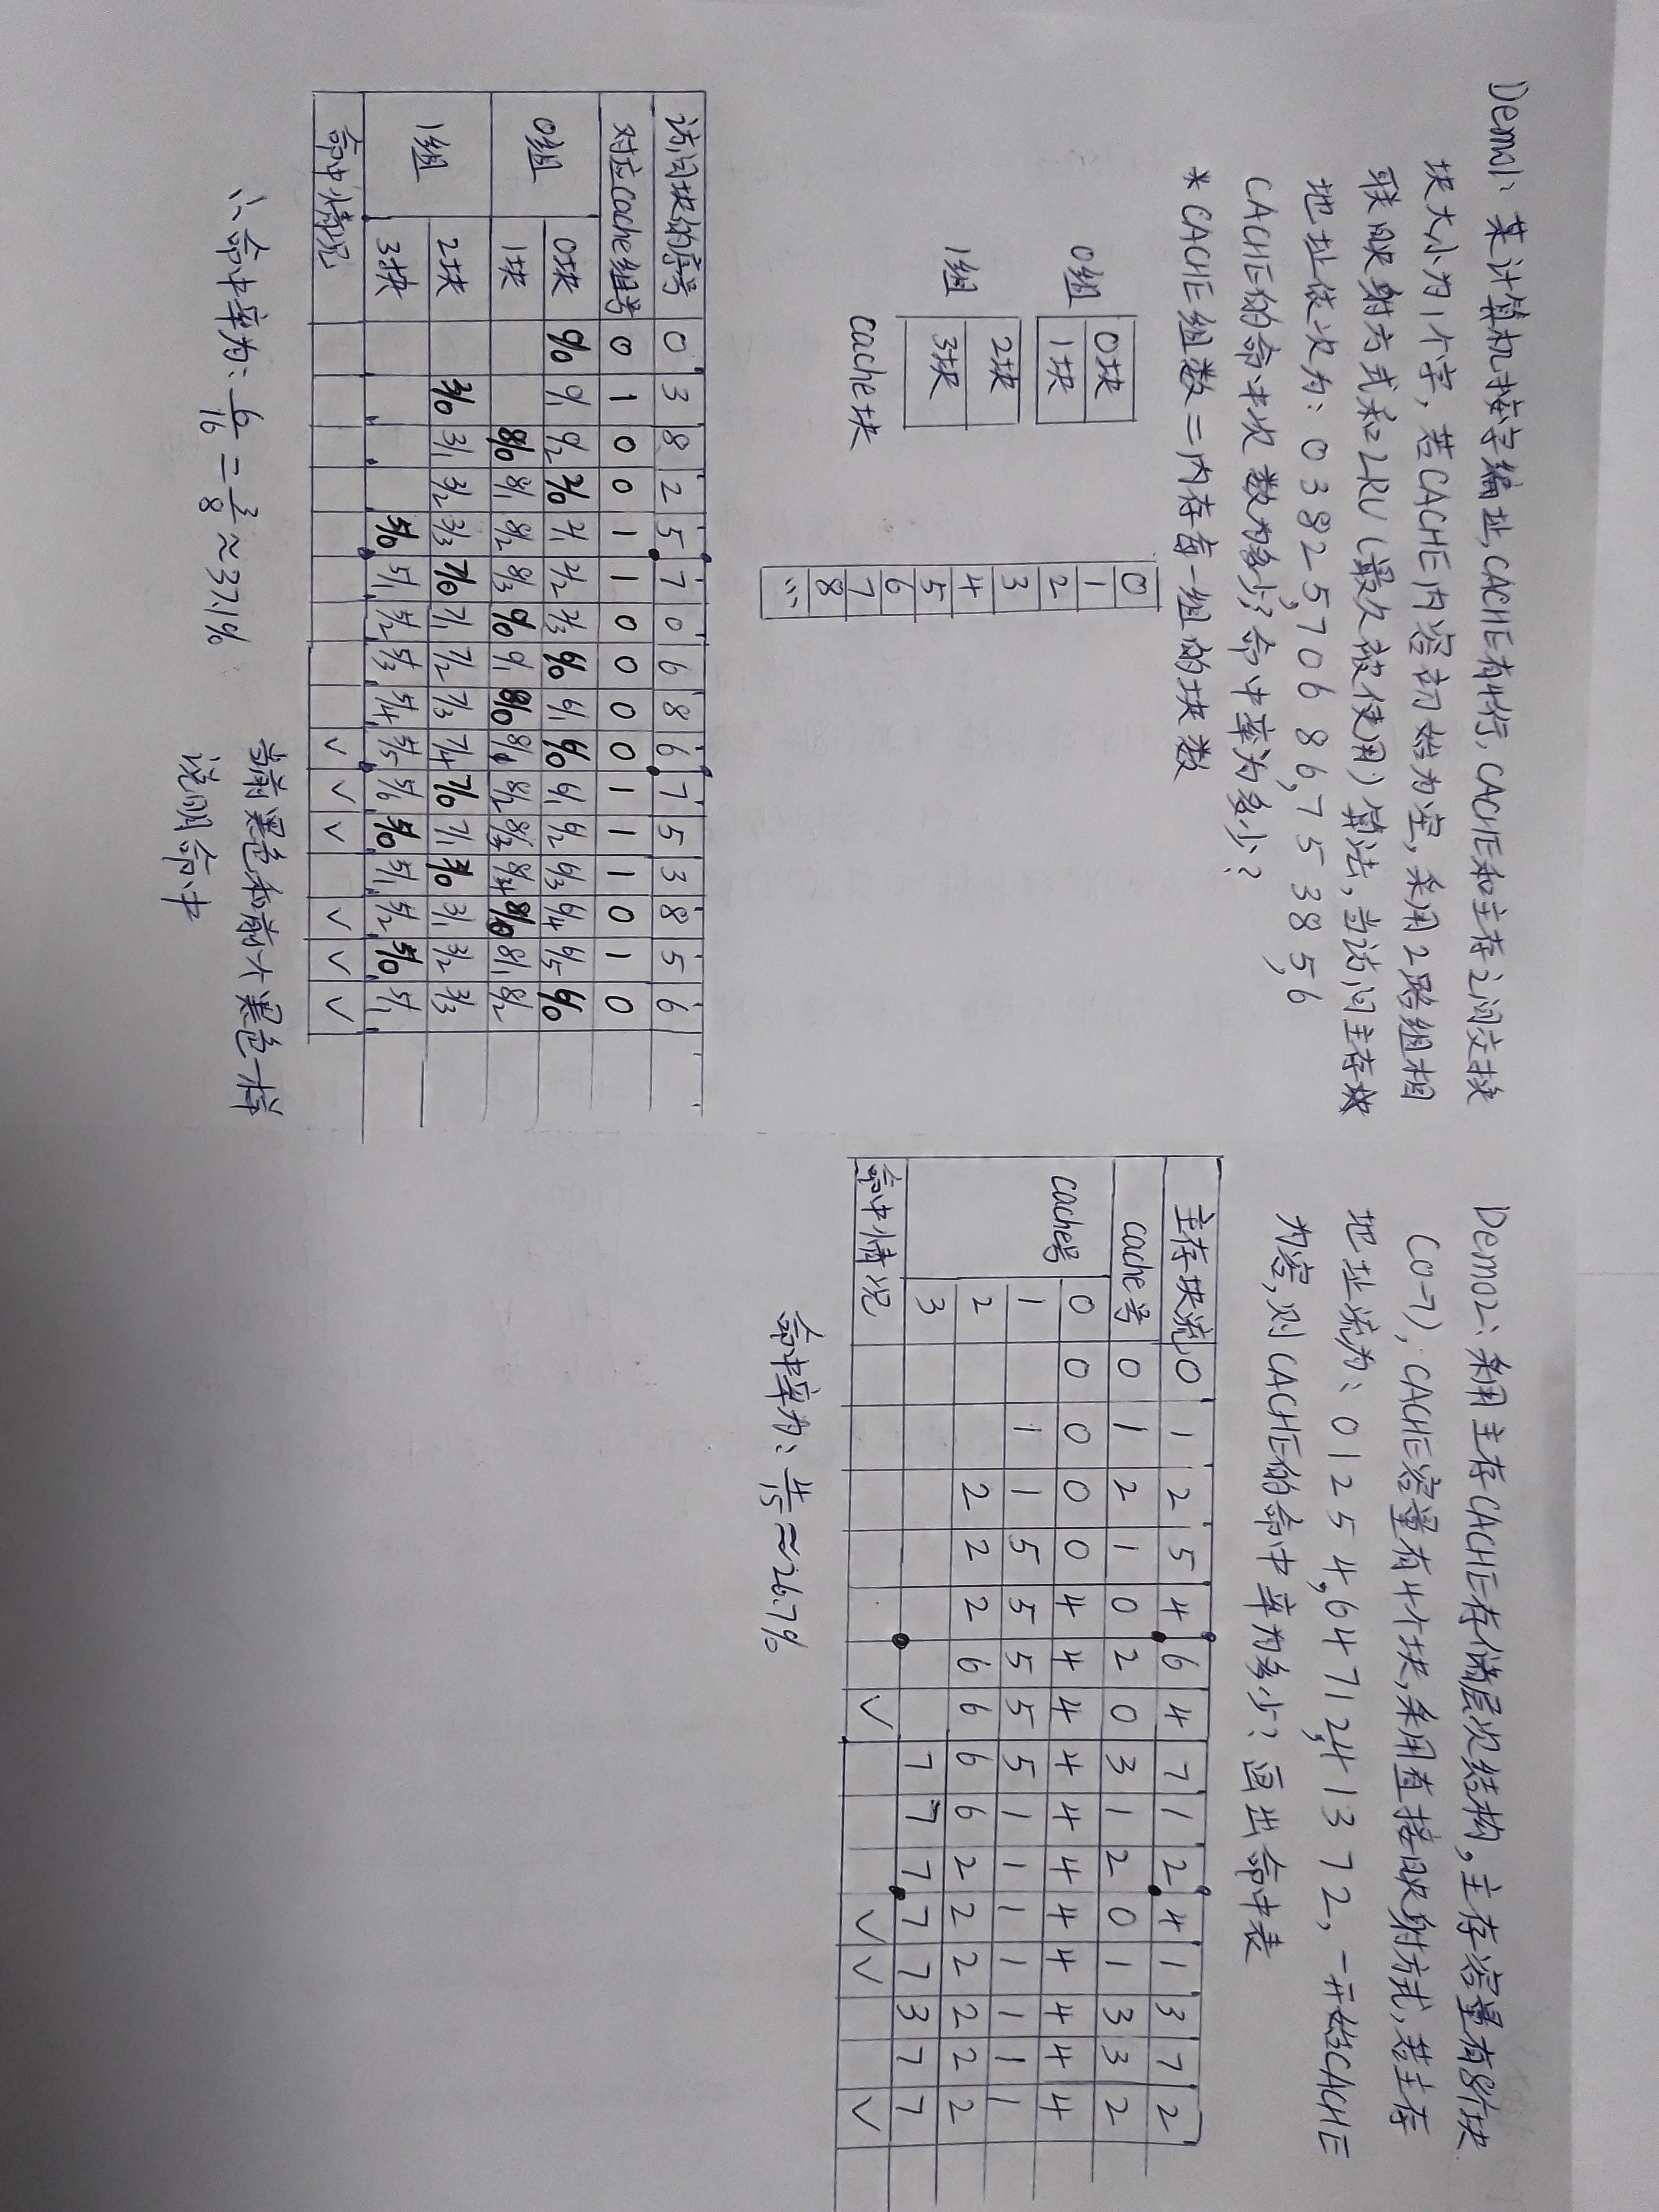 Demo1: 某计算机按字编址,CACHE有4行,CACHE和主存之间交换
块大小为1个字,若CACHE内容初始为空,采用2路组相
联映射方式和LRU(最久被使用)算法,当访问主存块
地址依次为: 0 3 8 2 5,7 0 6 8 6,7 5 3 8 5,6
CACHE的命中次数为多少?命中率为多少?
* CACHE组数=内存每一组的块数
0组 0块
1块
1组 2块
3块
cache块
0
1
2
3
4
5
6
7
8
...
访问块的序号 0 3 8 2 5 7 0 6 8 6 7 5 3 8 5 6
对应cache组号 0 1 0 0 1 1 0 0 0 0 1 1 1 0 1 0
0组 0块 0/0 0/1 0/2 2/0 2/1 2/2 2/3 6/0 6/1 6/0 6/1 6/2 6/3 6/4 6/5 6/0
1块 8/0 8/1 8/2 8/3 0/0 0/1 8/0 8/1 8/2 8/3 8/4 8/0 8/1 8/2
1组 2块 3/0 3/1 3/2 3/3 7/0 7/1 7/2 7/3 7/4 7/0 7/1 3/0 3/1 3/2 3/3
3块 5/0 5/1 5/2 5/3 5/4 5/5 5/6 5/0 5/1 5/2 5/0 5/1
命中情况 ✓ ✓ ✓ ✓ ✓ ✓
∴命中率为: 6/16 = 3/8 ≈37.1%
当前黑色和前一个黑色一样
说明命中
Demo2: 采用主存CACHE存储层次结构,主存容量有8个块
(0-7),CACHE容量有4个块,采用直接映射方式,若主存
地址流为: 0 1 2 5 4,6 4 7 1 2,4 1 3 7 2,一开始CACHE
为容,则CACHE的命中率为多少?画出命中表
主存块流 0 1 2 5 4 6 4 7 1 2 4 1 3 7 2
cache号 0 1 2 1 0 2 0 3 1 2 0 1 3 3 2
cache号 0 0 0 0 0 4 4 4 4 4 4 4 4 4 4 4
1 1 1 5 5 5 5 5 1 1 1 1 1 1 1
2 2 2 2 6 6 6 6 2 2 2 2 2 2
3 7 7 7 7 7 3 7 7
命中情况 ✓ ✓ ✓ ✓
命中率为: 4/15 ≈26.7%